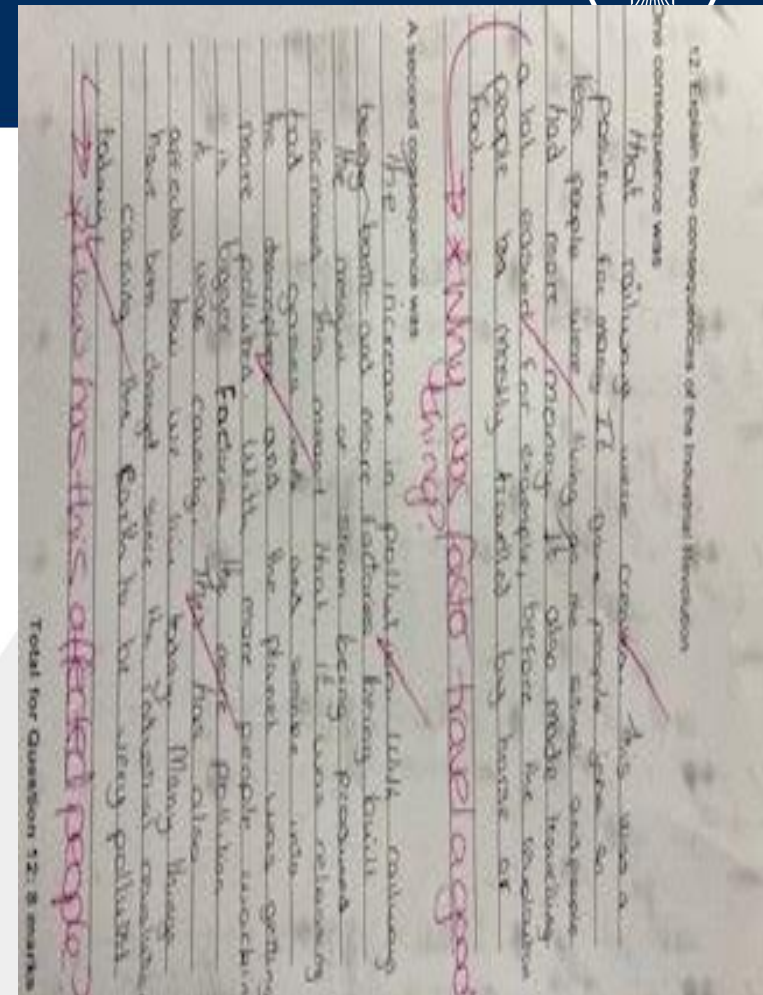 12. Explain two consequences of the Industrial Revolution
One consequence was
that railways were created. This was a
positive for many. It gave people jobs so
less people were living on the street and people
had more money. It also made travelling
a lot easier. For example, before the revolution
people mostly travelled by horse or
foot.
* Why was faster travel a good
thing?
A second consequence was
the increase in pollution. With railways
being built and more factories being built
the amount of steam being produced
increased. This meant that it was releasing
bad gasses and smoke into
the atmosphere and the planet was getting
more polluted. With more people working
in bigger factories the more pollution
it was causing. This has also
affected how we live today. Many things
have been changed since the industrial revolution
causing the Earth to be very polluted
today.
* How has this affected people?
Total for Question 12: 8 marks